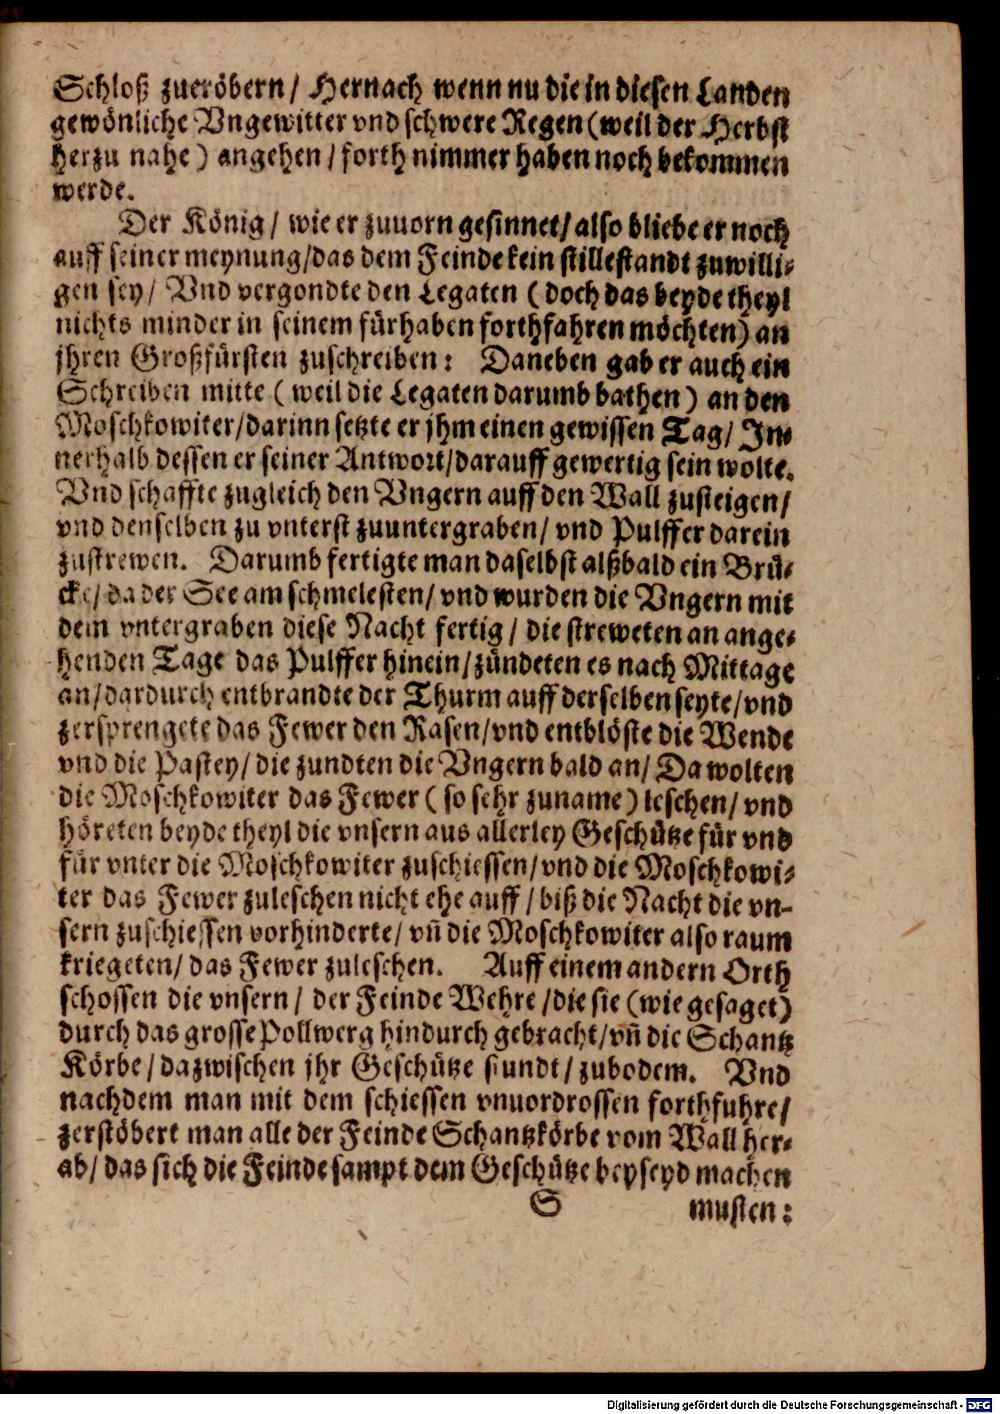 Schloß zueröbern/ Hernach wenn nu die in diesen Landen
gewönliche Vngewitter vnd schwere Regen (weil der Herbst
herzu nahe) angehen/ forth nimmer haben noch bekommen
werde.
Der König/ wie er zuuorn gesinnet/ also bliebe er noch
auff seiner meynung/ das dem Feinde kein stillestandt zuwilli-
gen sey/ Vnd vergondte den Legaten (doch das beyde theyl
nichts minder in seinem fürhaben forthfahren möchten) an
jhren Großfürsten zuschreiben: Daneben gab er auch ein
Schreiben mitte (weil die Legaten darumb bathen) an den
Moschkowiter/ darinn setzte er jhm einen gewissen Tag/ In-
nerhalb dessen er seiner Antwort/ darauff gewertig sein wolte.
Vnd schaffte zugleich den Vngern auff den Wall zusteigen/
vnd denselben zu vnterst zuuntergraben/ vnd Pulffer darein
zustrewen. Darumb fertigte man daselbst alßbald ein Brü-
cke/ da der See am schmelesten/ vnd wurden die Vngern mit
dem vntergraben diese Nacht fertig/ die streweten an ange-
henden Tage das Pulffer hinein/ zündeten es nach Mittage
an/ dardurch entbrandte der Thurm auff derselben seyte/ vnd
zersprengete das Fewer den Rasen/ vnd entblöste die Wende
vnd die Pastey/ die zundten die Vngern bald an/ Da wolten
die Moschkowiter das Fewer (so sehr zuname) leschen/ vnd
höreten beyde theyl die vnsern aus allerley Geschütze für vnd
für vnter die Moschkowiter zuschiessen/ vnd die Moschkowi-
ter das Fewer zuleschen nicht ehe auff/ biß die Nacht die vn-
sern zuschiessen vorhinderte/ vñ die Moschkowiter also raum
kriegeten/ das Fewer zuleschen. Auff einem andern Orth
schossen die vnsern/ der Feinde Wehre/ die sie (wie gesaget)
durch das grosse Pollwerg hindurch gebracht/ vñ die Schantz
Körbe/ dazwischen jhr Geschütze stundt/ zubodem. Vnd
nachdem man mit dem schiessen vnuordrossen forthfuhre/
zerstöbert man alle der Feinde Schantzkörbe vom Wall her-
ab/ das sich die Feinde sampt dem Geschütze beyseyd machen
S musten:
Digitalisierung gefördert durch die Deutsche Forschungsgemeinschaft - DFG